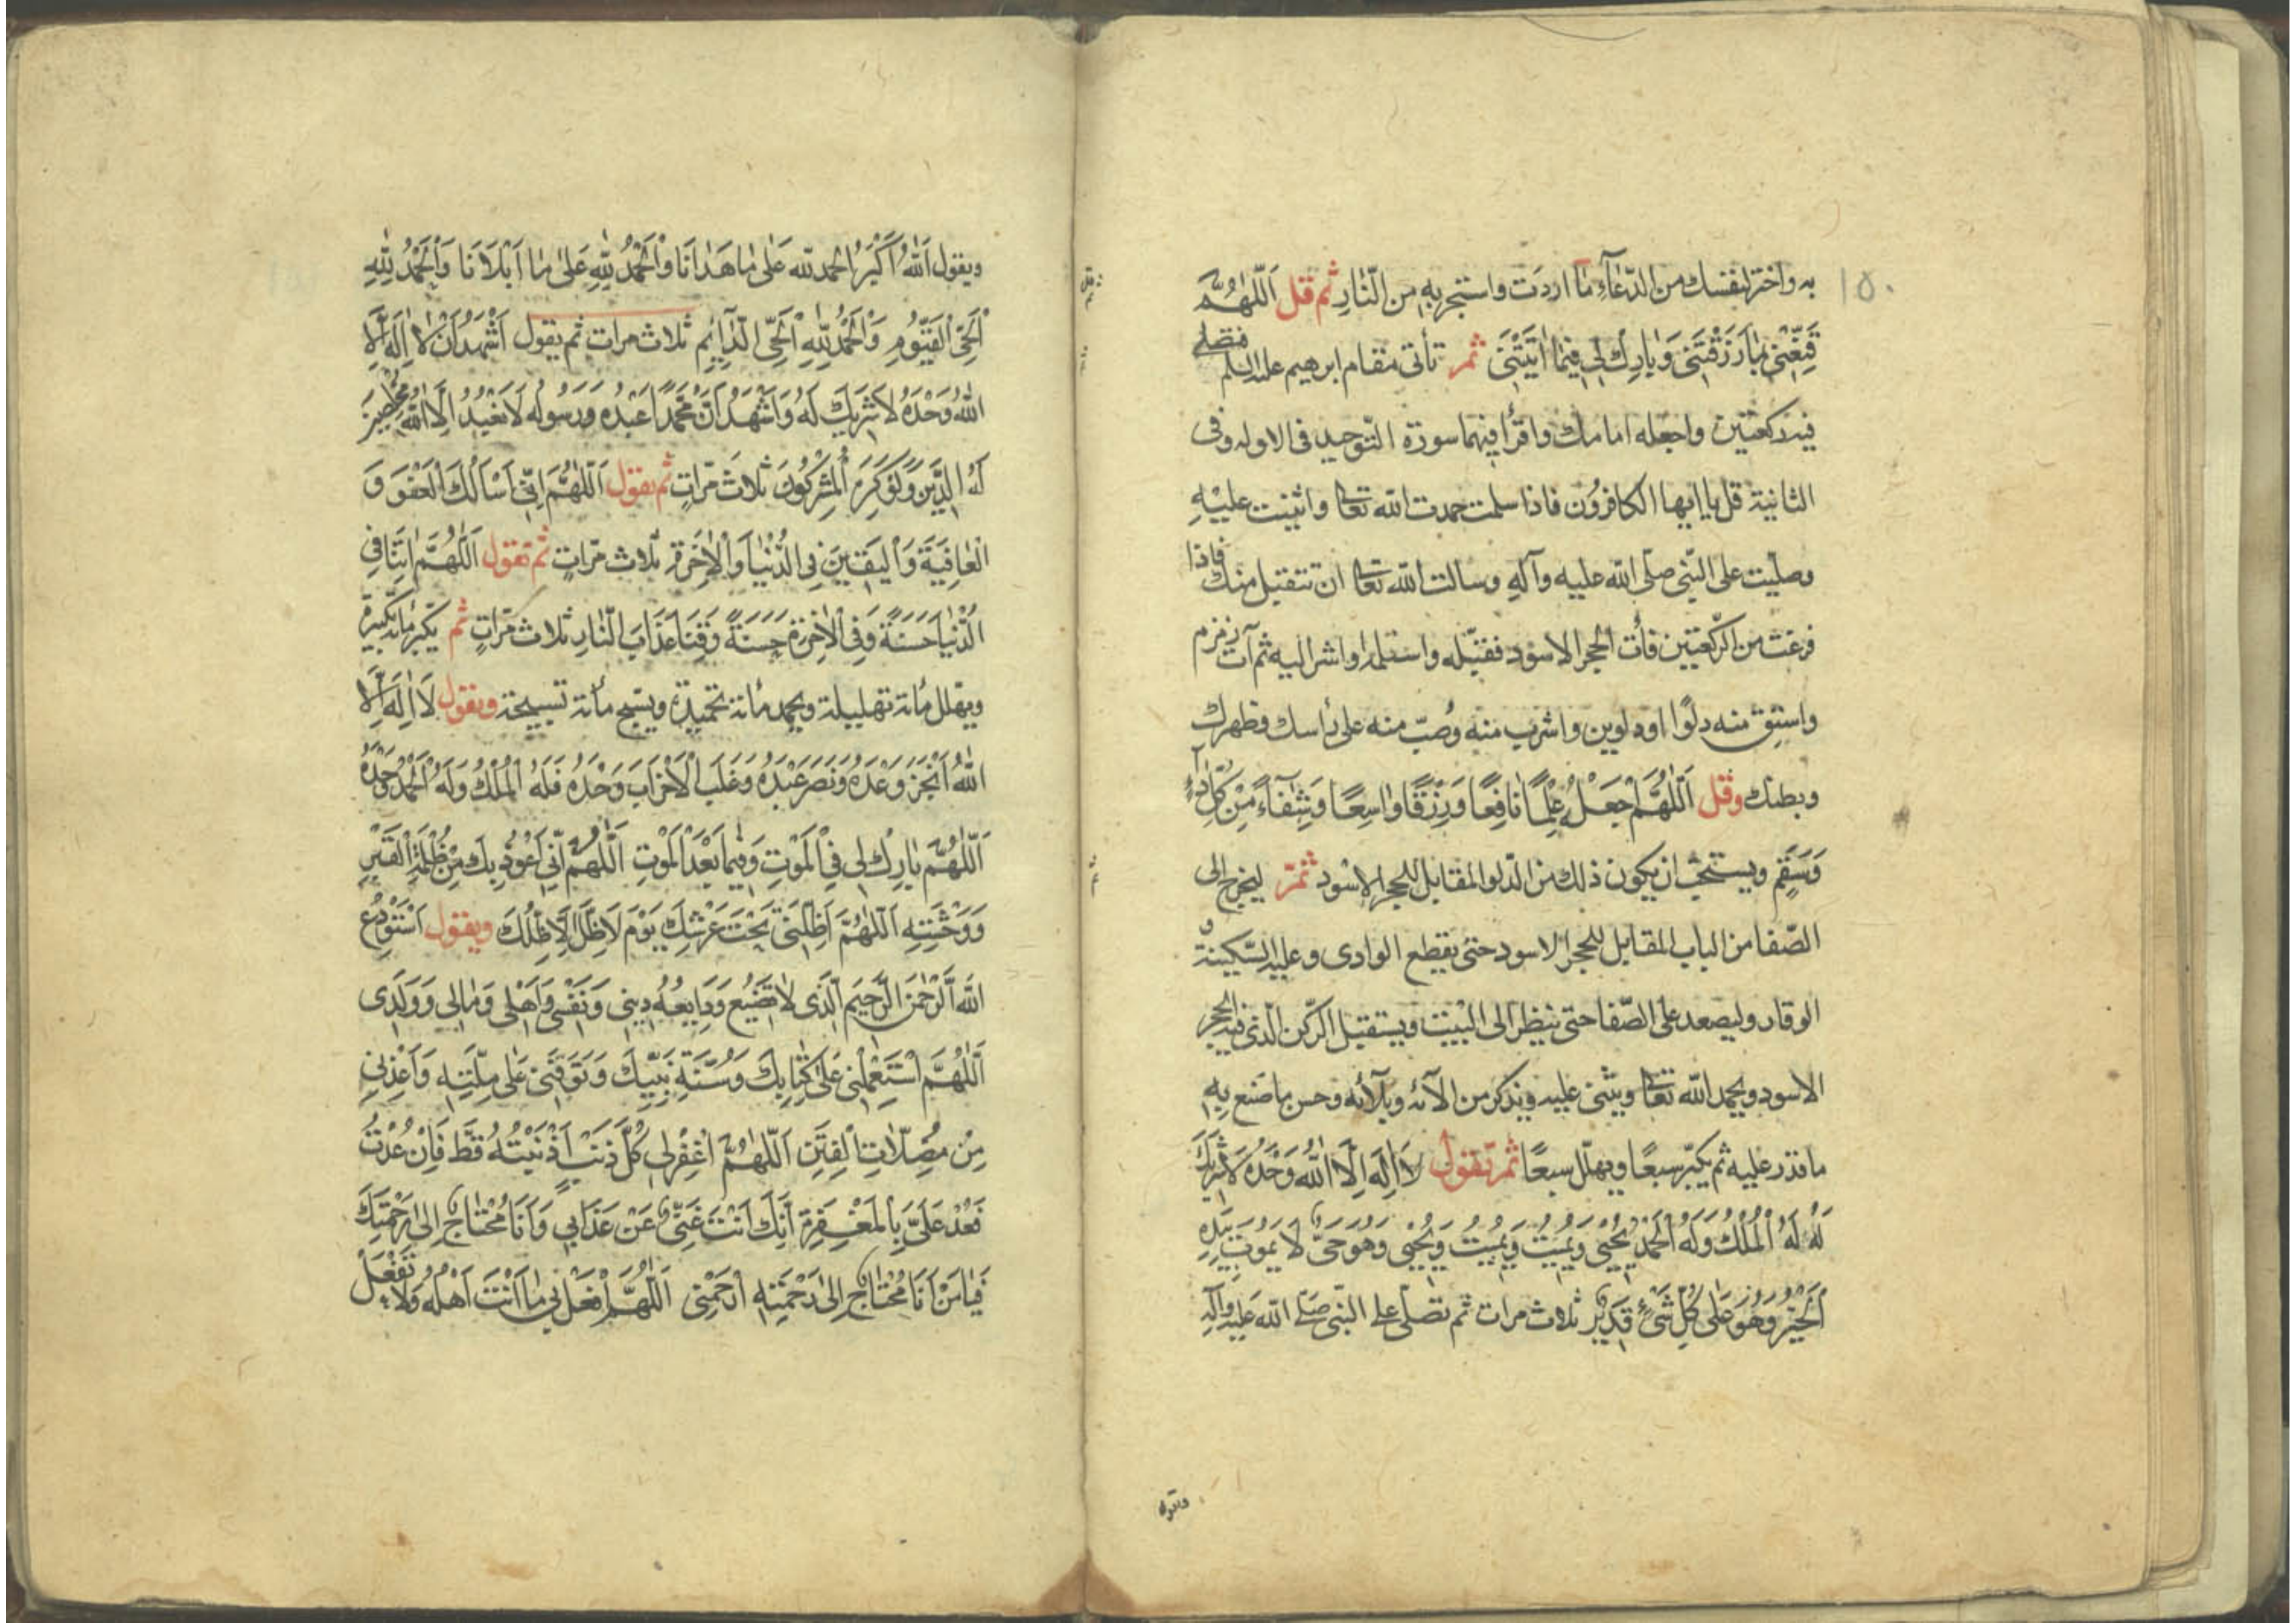 ١٥٠
به واختر لنفسك من الدّعآءِ ما اردت واستجر بهِ من النّارِ ثم قل اَللّهُمَّ
قَنِّعْنى بِمٰا رَزَقْتَنى وَبٰارِكْ لى فيمٰا اٰتَيْتَنى ثمّ تأتى مقام ابرهيم عليه السلم فتصلّى
فيه ركعتين واجعله امامك واقرأ فيهما سورة التّوحيد فى الاولى وفى
الثانية قل يا ايها الكافرون فاذا سلمت حمدت الله تعالى واثنيت عليْهِ
وصلّيت على النّبى صلّى الله عليه وآلهِ وسالت الله تعالى ان تتقبل منك فاذا
فرغت من الرّكعتين فأت الحجر الاسود فقبّله واستلمه او اشر اليه ثم آت زمزم
واستق منه دلوًا او دلوين واشرب منه وصبّ منه على رأسك وظهرك
وبطنك وقل اَللّهُمَّ اجْعَلْهُ عِلْمًا نٰافِعًا وَرِزْقًا وٰاسِعًا وَشِفٰآءً مِنْ كُلِّ دٰآءٍ
وَسَقَمٍ ويستحبّ ان يكون ذلك من الدّلو المقابل للحجر الاسود ثمّ ليخرج الى
الصّفا من الباب المقابل للحجر الاسود حتى يقطع الوادى وعليه السّكينة و
الوقار وليصعد على الصّفا حتى ينظر الى البيت ويستقبل الرّكن الّذى فيه الحجر
الاسود ويحمد الله تعالى ويثنى عليه ويذكر من الآئه وبلآئه وحسن ما صنع بهِ
ما قدر عليه ثم يكبّر سبعًا ويهلّل سبعًا ثمّ تقول لاٰ اِلٰهَ اِلّا اللهُ وَحْدَهُ لاٰ شَرِيْكَ
لَهُ لَهُ الْمُلْكُ وَلَهُ الْحَمْدُ يُحْيِى وَيُمِيْتُ وَيُمِيْتُ وَيُحْيِى وَهُوَ حَىٌّ لاٰ يَمُوتُ بِيَدِهِ
الْخَيْرُ وَهُوَ عَلٰى كُلِّ شَىْءٍ قَدِيْرٌ ثلاث مرات ثم تصلّى على النّبى صلّى الله عليه وآلهِ
ويقول اَللهُ اَكْبَرُ الحمد لله عَلٰى مٰا هَدٰانَا وَالْحَمْدُ لِلّٰهِ عَلىٰ مٰا اَبْلاٰنَا وَالْحَمْدُ لِلّٰهِ
الْحَىِّ الْقَيُّومِ وَالْحَمْدُ لِلّٰهِ الْحَىِّ الدّٰآئِمِ ثلاث مرات ثم يقول اَشْهَدُ اَنْ لاٰ اِلٰهَ اِلّاَ
اللهُ وَحْدَهُ لاٰ شَرِيكَ لَهُ وَاَشْهَدُ اَنَّ مُحَمَّدًا عَبْدُهُ وَرَسُولُهُ لاٰ نَعْبُدُ اِلّا اللهَ مُخْلِصِيْنَ
لَهُ الدّينَ وَلَوْ كَرِهَ الْمُشْرِكُونَ ثلاث مَرّاتٍ ثم يقول اَللّٰهُمَّ اِنّى اَسْاَلُكَ الْعَفْوَ وَ
الْعٰافِيَةَ وَالْيَقِيْنَ فِى الدُّنْيٰا وَالْاٰخِرَةِ ثلاث مرّاتٍ ثم تقول اَللّٰهُمَّ اٰتِنَا فِى
الدُّنْيٰا حَسَنَةً وَفِى الْاٰخِرَةِ حَسَنَةً وَقِنَا عَذَابَ النّٰارِ ثلاث مرّاتٍ ثم يكبّر مائة تكبيرة
ويهلّل مائة تهليلة ويحمد مائة تحميدة ويسبّح مأئة تسبيحة ويقول لاٰ اِلٰهَ اِلّا
اللهُ اَنْجَزَ وَعْدَهُ وَنَصَرَ عَبْدَهُ وَغَلَبَ الْاَحْزٰابَ وَحْدَهُ فَلَهُ الْمُلْكُ وَلَهُ الْحَمْدُ وَحْدَهُ
اَللّٰهُمَّ بٰارِكْ لى فِى الْمَوْتِ وَفيمٰا بَعْدَ الْمَوْتِ اَللّٰهُمَّ اِنّى اَعُوذُ بِكَ مِنْ ظُلْمَةِ الْقَبْرِ
وَوَحْشَتِهِ اَللّٰهُمَّ اَظِلَّنى تَحْتَ عَرْشِكَ يَوْمَ لاٰ ظِلَّ اِلّاٰ ظِلُّكَ ويقول اَسْتَوْدِعُ
اللهَ الرَّحْمٰنَ الرَّحِيمَ الَّذى لاٰ تَضيعُ وَدٰايِعُهُ دينى وَنَفْسى وَاَهْلى وَمٰالى وَوَلَدى
اَللّٰهُمَّ اسْتَعْمِلْنى عَلىٰ كِتٰابِكَ وَسُنَّةِ نَبِيِّكَ وَتَوَفَّنى عَلىٰ مِلَّتِهِ وَاَعِذْنى
مِنْ مُضِلّاٰتِ الْفِتَنِ اَللّٰهُمَّ اغْفِرْ لى كُلَّ ذَنْبٍ اَذْنَبْتُهُ قَطُّ فَاِنْ عُدْتُ
فَعُدْ عَلَىَّ بِالْمَغْفِرَةِ اِنَّكَ اَنْتَ غَنِىٌّ عَنْ عَذٰابى وَاَنَا مُحْتٰاجٌ اِلىٰ رَحْمَتِكَ
فَيٰا مَنْ اَنَا مُحْتٰاجٌ اِلىٰ رَحْمَتِهِ ارْحَمْنى اَللّٰهُمَّ افْعَلْ بى مٰا اَنْتَ اَهْلُهُ وَلاٰ تَفْعَلْ